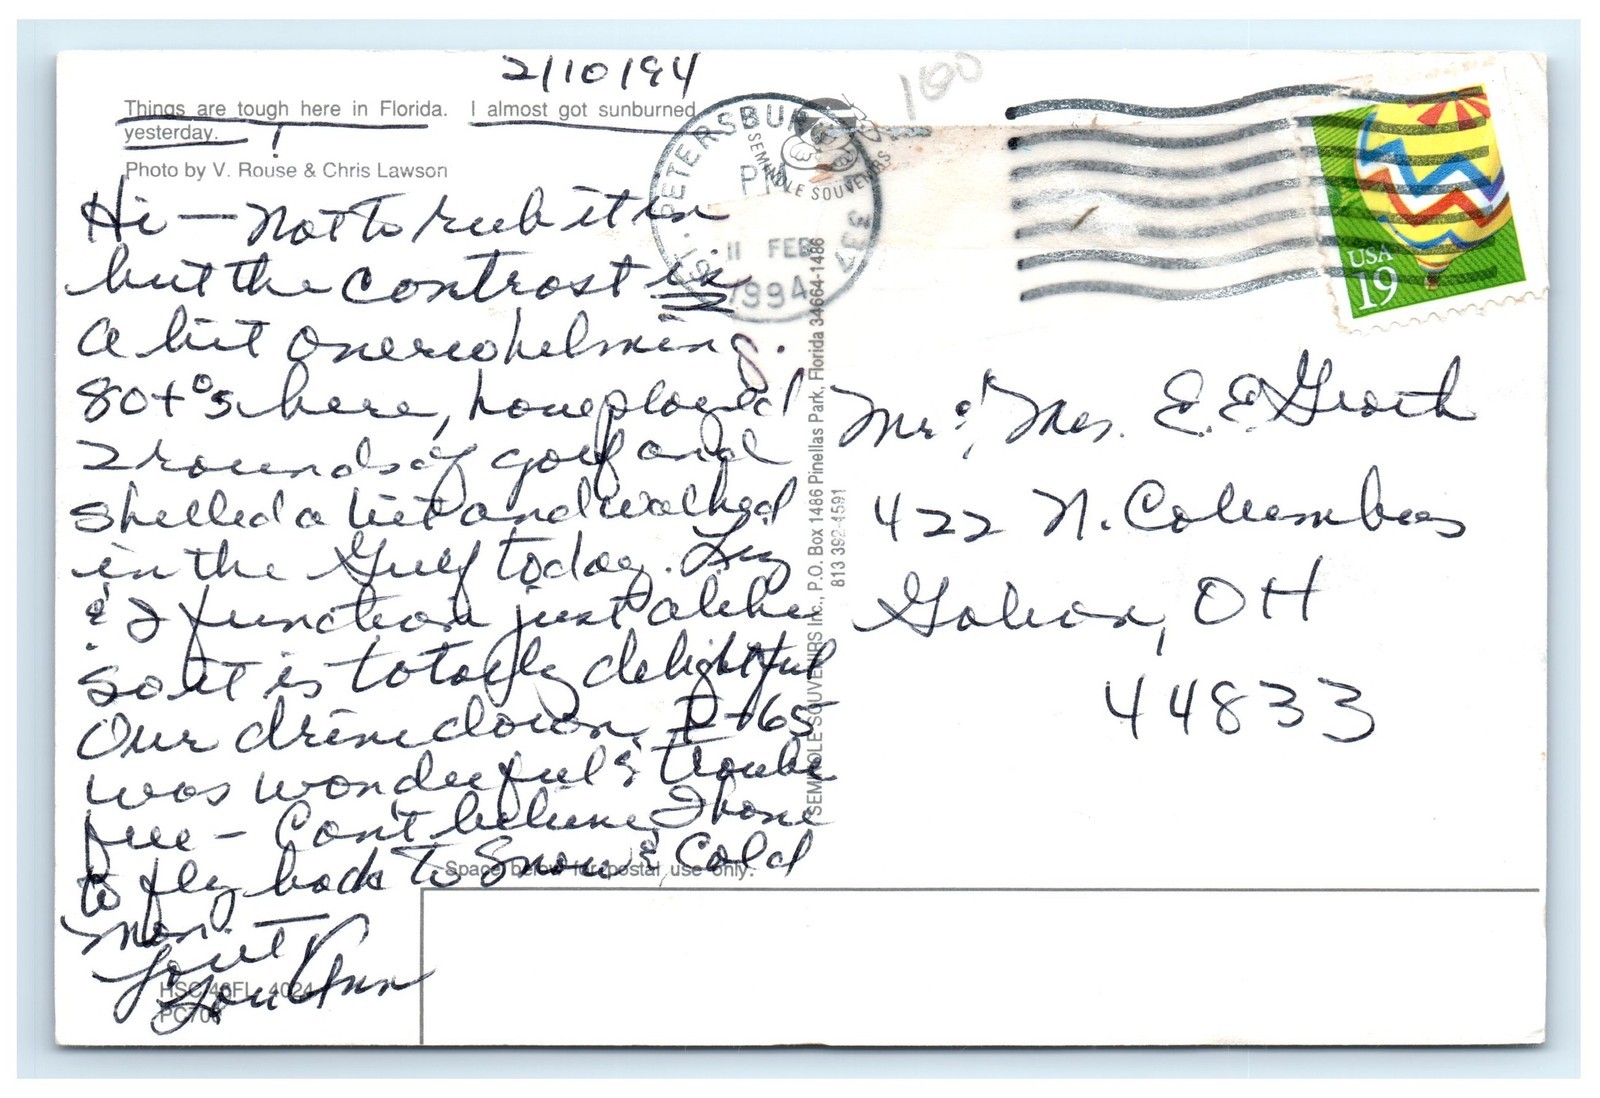 2/10/94
Things are tough here in Florida. I almost got sunburned
yesterday. !
Photo by V. Rouse & Chris Lawson
Hi — Not to rub it in
but the contrast is
a bit overwhelming.
80+°s here, have played
2 rounds of golf and
shelled a bit and walked
in the Gulf today. Liz
& I function just alike
so it is totally delightful
Our drive down I-65
was wonderful & trouble
free - Can't believe I have
to fly back to Snow & Cold
Mon. —
Lou Ann
HSC/46FL 4024
PC706
ST. PETERSBURG
PM
11 FEB
1994
337
SEMINOLE SOUVENIRS
100
SEMINOLE SOUVENIRS Inc., P.O. Box 1486 Pinellas Park, Florida 34664-1486
813 392-4591
USA
19
Mr. & Mrs. E. E. Groth
422 N. Columbus
Galion, OH
44833
Space below for postal use only.